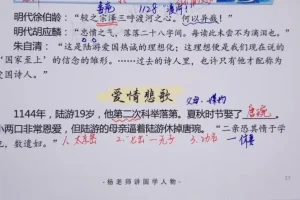 1128 渡河!
明代徐伯龄:“较之宗泽三呼渡河之心,何以异哉!”
明代胡应麟:“忠愤之气,落落二十八字间。每读此未尝不为滴泪也。”
朱自清:“这是陆游爱国热诚的理想化;这理想便是我们现在说的“国
家至上”的信念的雏形……过去的诗人里,也许只有他才配称为
爱国诗人。”
爱情悲歌
1144年,陆游19岁,他第二次科举落第。夏秋时节娶了唐琬。
小两口非常恩爱,但陆游的母亲逼着陆游休掉唐琬。“二亲恐其惰于学
也,数谴妇。”
1. 2. 无子 3.
杨老师讲国学人物